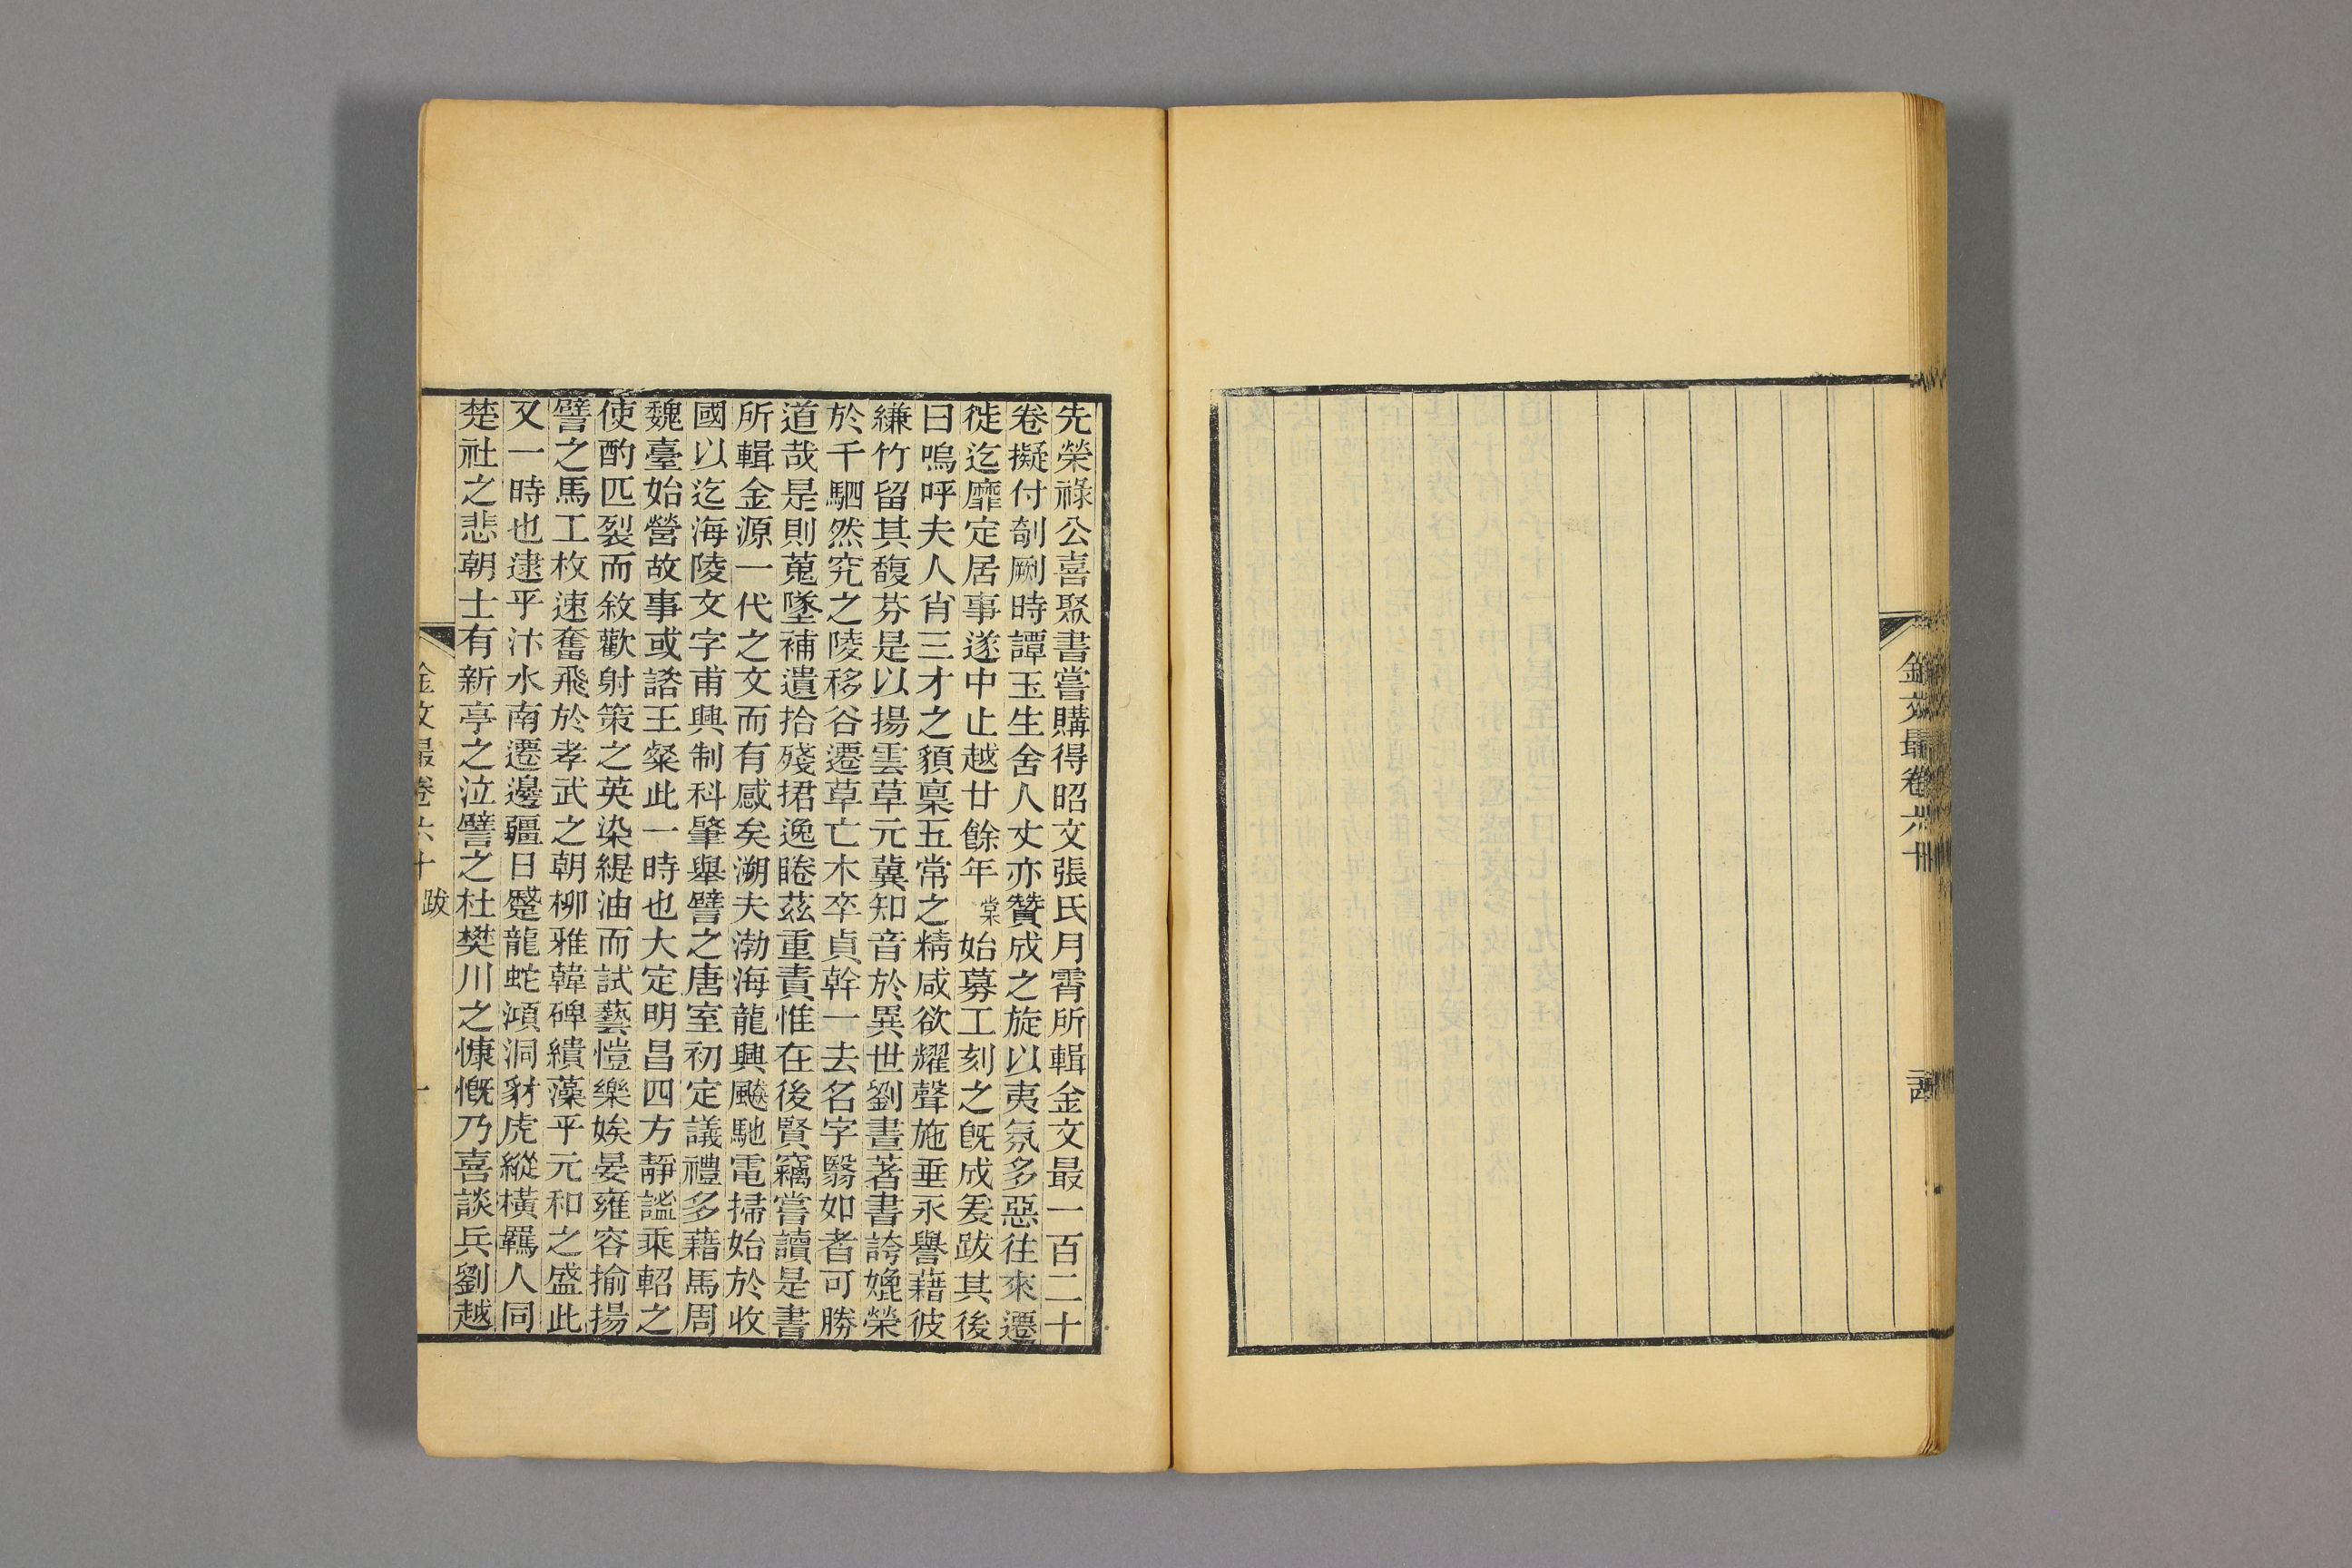 金文最卷六十
先榮祿公喜聚書嘗購得昭文張氏月霄所輯金文最一百二十
卷擬付剞劂時譚玉生舍人丈亦贊成之旋以夷氛多惡往來遷
徙迄靡定居事遂中止越廿餘年棠始募工刻之旣成爰跋其後
曰嗚呼夫人肖三才之貌稟五常之精咸欲耀聲施垂永譽藉彼
縑竹留其馥芬是以揚雲草元冀知音於異世劉晝著書誇娩榮
於千駟然究之陵移谷遷草亡木卒貞幹一去名字翳如者可勝
道哉是則蒐墜補遺拾殘捃逸睠茲重責惟在後賢竊嘗讀是書
所輯金源一代之文而有感矣溯夫渤海龍興飈馳電掃始於收
國以迄海陵文字甫興制科肇舉譬之唐室初定議禮多藉馬周
魏臺始營故事或諮王粲此一時也大定明昌四方靜謐乘軺之
使酌匹裂而敘歡射策之英染緹油而試藝愷樂娭晏雍容揄揚
譬之馬工枚速奮飛於孝武之朝柳雅韓碑繢藻乎元和之盛此
又一時也逮乎汴水南遷邊疆日蹙龍蛇澒洞豺虎縱橫羈人同
楚社之悲朝士有新亭之泣譬之杜樊川之慷慨乃喜談兵劉越
金文最卷六十 跋 一